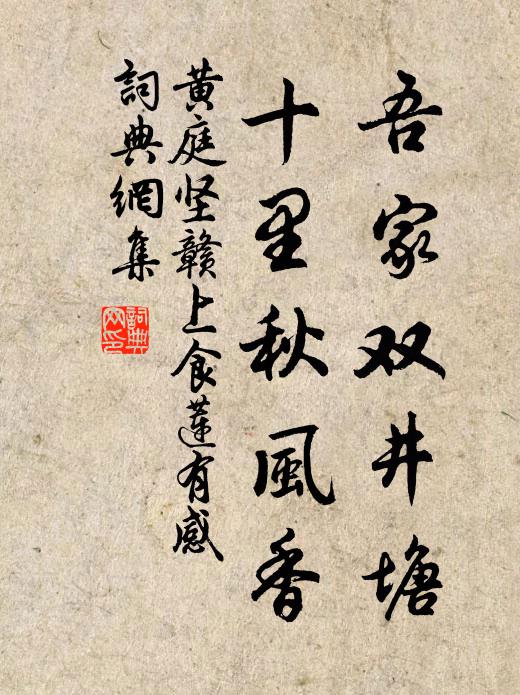 吾家双井塘
十里秋風香
黃庭坚贛上食蓮有感
詞典網集
詞典网印